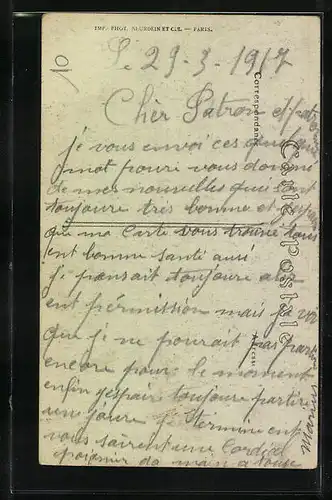 IMP. PHOT. NEURDEIN ET CIE. — PARIS.
10
Le 29-3-1917
Cher Patron et patronne
je vous envoi ces quelques
mot pouré vous donné
de mes nouvelles qui sont
toujoure très bonne et j'espair
que ma Carte vous trouve tous
ent bonne santé ausi
je pansait toujoure alez
ent permission mais je voi
que je ne pourait pas partir
encore pour le moment
enfin j'espair toujoure partir
une joure je termine ent
vous sairent une Cordial
poignée de main a tous
Carte postale
Correspondance